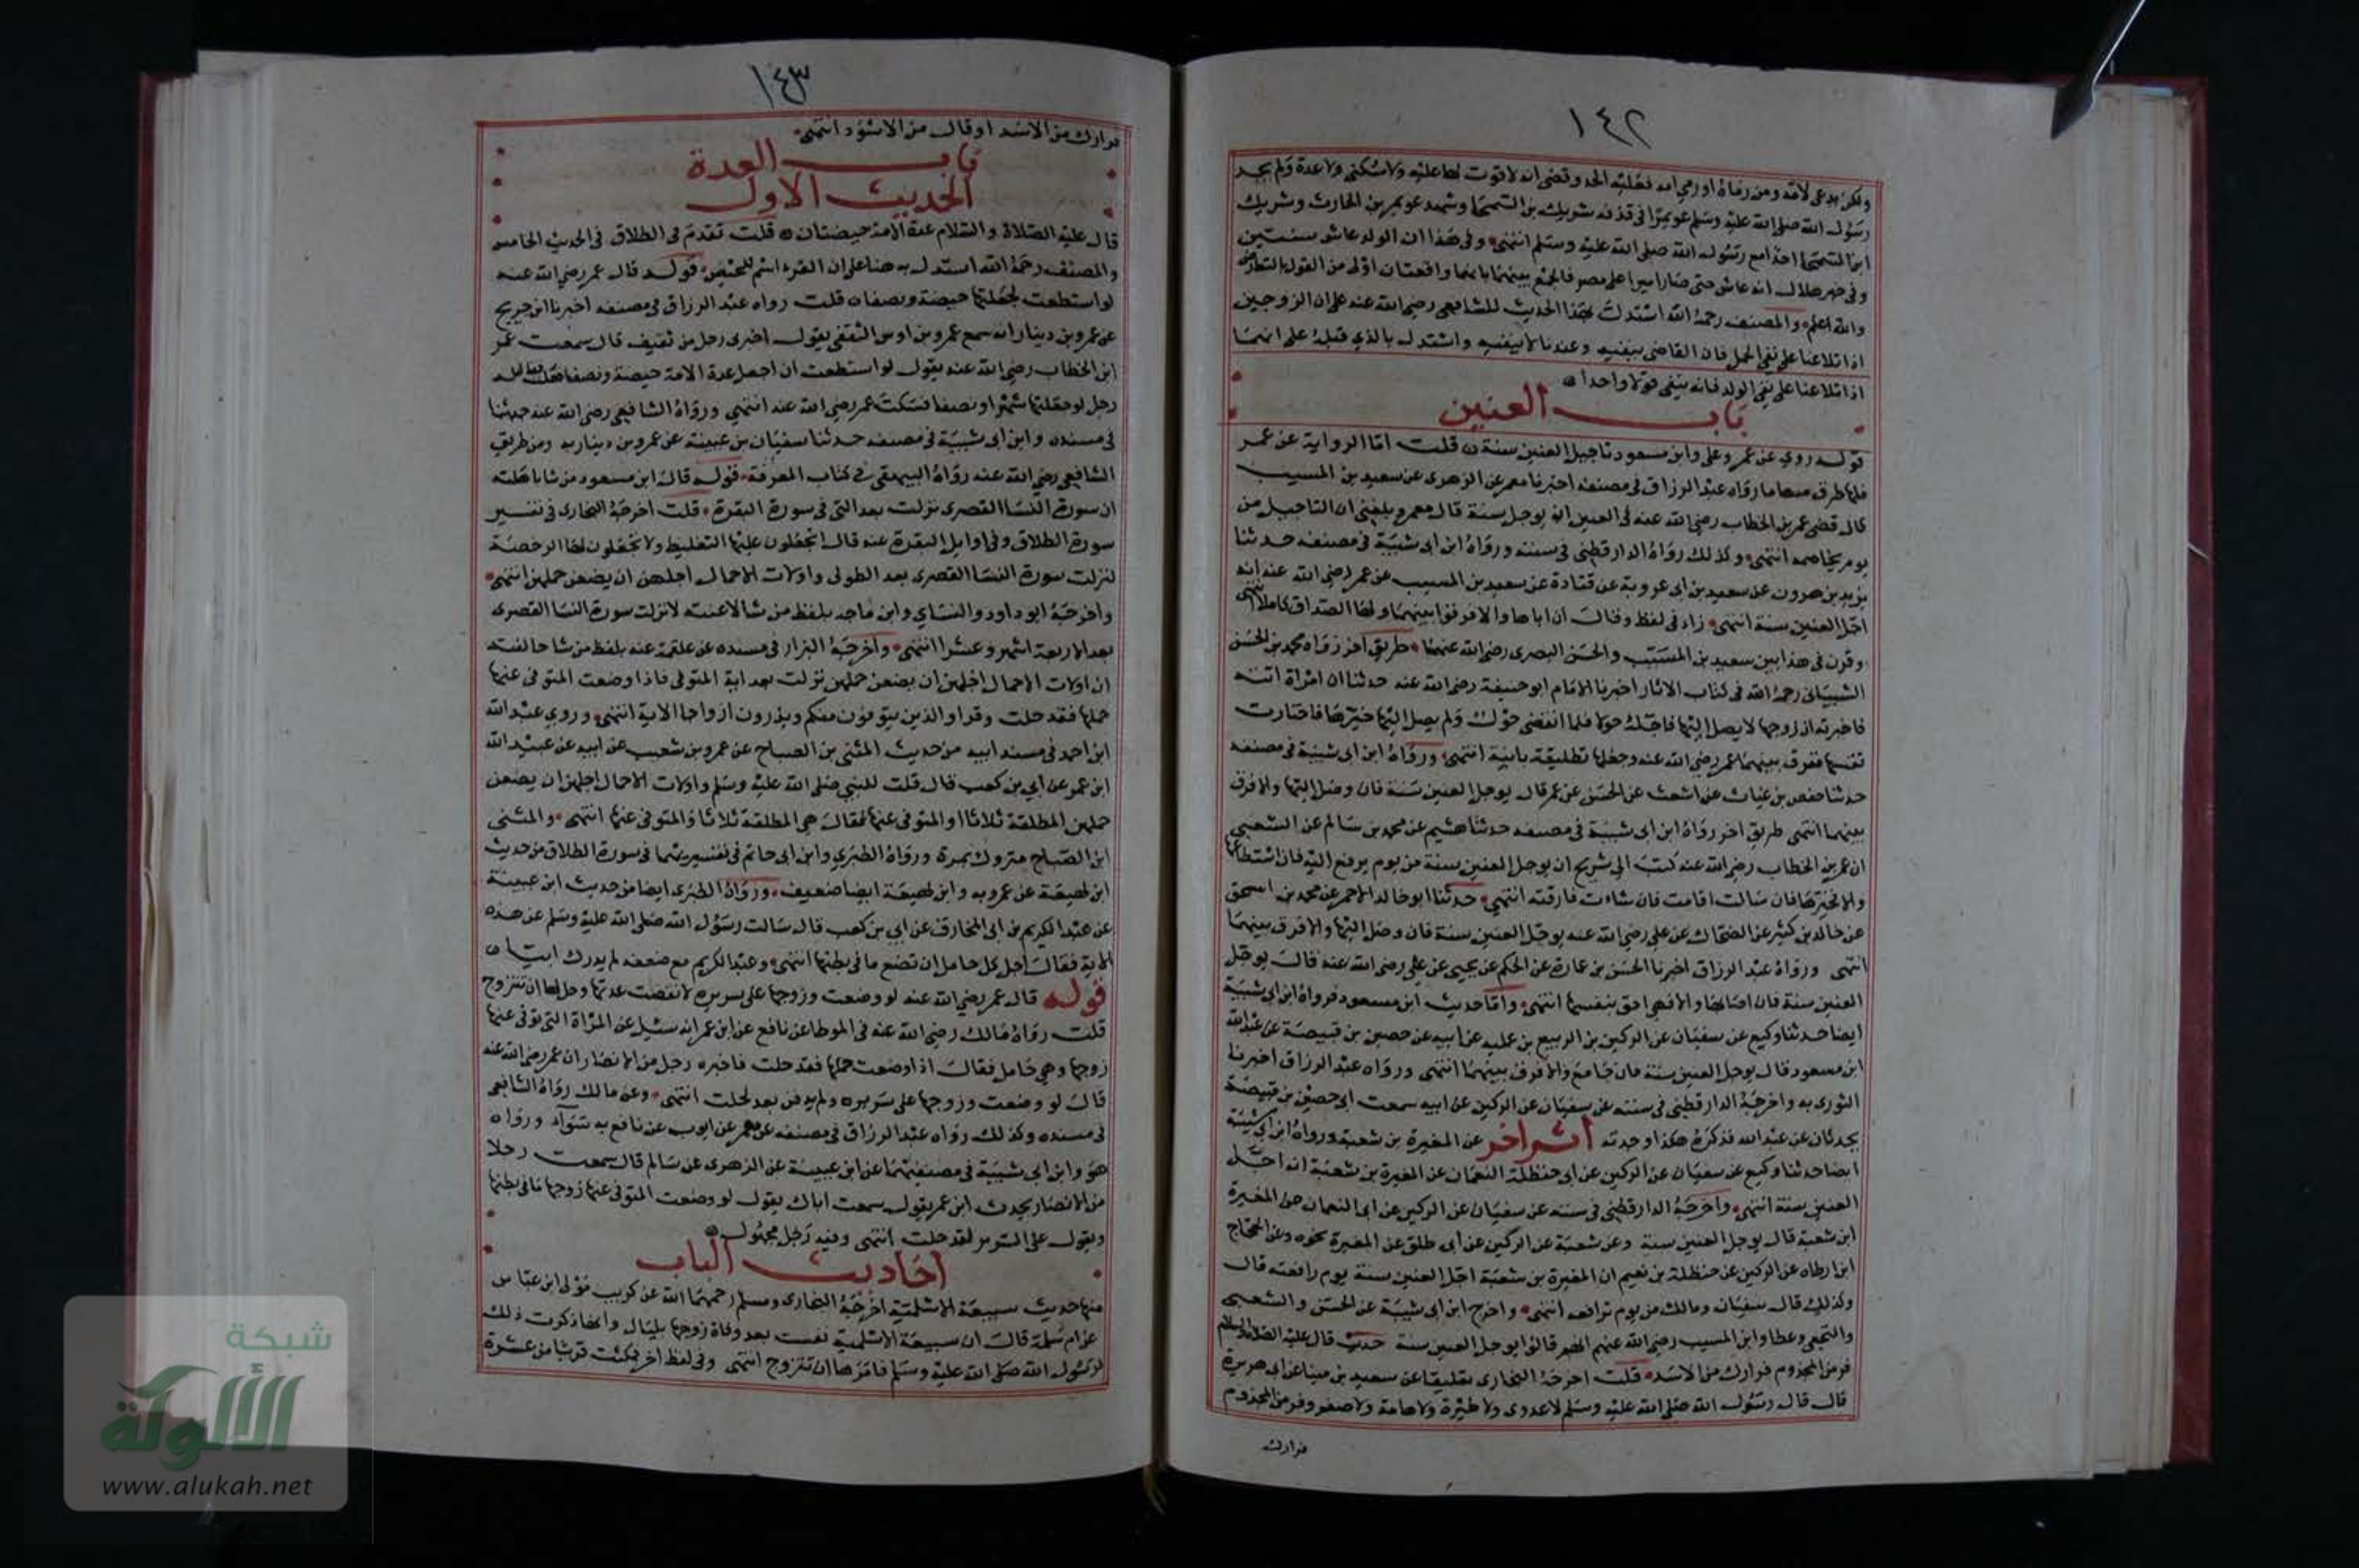 ١٤٢
ولكن يدعى لامه ومن رماها او رمى ابنها فعليه الحد وقضى ان لا قوت لها عليه ولا سكنى ولا عدة ولم يجد
رسول الله صلى الله عليه وسلم عويمرا في قذفه شريك بن السحما وشهد عويمر بن الحارث وشريك
ابن السحما احدا مع رسول الله صلى الله عليه وسلم انتهى وفي هذا ان الولد عاش سنتين
وفي خبر هلال انه عاش حتى صار اميرا على مصر فالجمع بينهما بانهما واقعتان اولى من القول بالتعارض
والله اعلم والمصنف رحمه الله استدل بهذا الحديث للشافعي رضي الله عنه على ان الزوجين
اذا تلاعنا على نفي الحمل فان القاضي ينفيه وعندنا لا ينفيه واستدل بالذي قبله على انهما
اذا تلاعنا على نفي الولد فانه ينفى قولا واحدا
باب العنين
قوله روي عن عمر وعلي وابن مسعود تاجيل العنين سنة قلت اما الرواية عن عمر
فلها طرق منها ما رواه عبد الرزاق في مصنفه اخبرنا معمر عن الزهري عن سعيد بن المسيب
قال قضى عمر بن الخطاب رضي الله عنه في العنين ان يوجل سنة قال معمر وبلغني ان التاجيل من
يوم يخاصمه انتهى وكذلك رواه الدارقطني في سننه ورواه ابن ابي شيبة في مصنفه حدثنا
يزيد بن هرون عن سعيد بن ابي عروبة عن قتادة عن سعيد بن المسيب عن عمر رضي الله عنه انه
اجل العنين سنة انتهى زاد في لفظ وقال ان اتاها والا فرقوا بينهما ولها الصداق كاملا انتهى
وقرن في هذا بين سعيد بن المسيب والحسن البصري رضي الله عنهما طريق اخر رواه محمد بن الحسن
الشيباني رحمه الله في كتاب الاثار اخبرنا الامام ابو حنيفة رضي الله عنه حدثنا ان امراة اتته
فاخبرته ان زوجها لا يصل اليها فاجله حولا فلما انقضى حول ولم يصل اليها خيرها فاختارت
نفسها ففرق بينهما عمر رضي الله عنه وجعلها تطليقة باينة انتهى ورواه ابن ابي شيبة في مصنفه
حدثنا حفص بن غياث عن اشعث عن الحسن عن عمر قال يوجل العنين سنة فان وصل اليها والا فرق
بينهما انتهى طريق اخر رواه ابن ابي شيبة في مصنفه حدثنا هشيم عن محمد بن سالم عن الشعبي
ان عمر بن الخطاب رضي الله عنه كتب الى شريح ان يوجل العنين سنة من يوم يرفع اليه فان استطاعها
والا فخيرها فان سالت اقامت فان شاءت فارقته انتهى حدثنا ابو خالد الاحمر عن محمد بن اسحق
عن خالد بن كثير عن الضحاك عن علي رضي الله عنه يوجل العنين سنة فان وصل اليها والا فرق بينهما
انتهى ورواه عبد الرزاق اخبرنا الحسن بن عمارة عن الحكم عن يحيى عن علي رضي الله عنه قال يوجل
العنين سنة فان اصابها والا فهي احق بنفسها انتهى واما حديث ابن مسعود فرواه ابن ابي شيبة
ايضا حدثنا وكيع عن سفيان عن الركين بن الربيع بن عليه عن ابيه عن حصين بن قبيصة عن عبد الله
ابن مسعود قال يوجل العنين سنة فان جامع والا فرق بينهما انتهى ورواه عبد الرزاق اخبرنا
الثوري به واخرجه الدارقطني في سننه عن سفيان عن الركين عن ابيه سمعت ابي حصين بن قبيصة
يحدثان عن عبد الله فذكره هكذا وجدته اثر اخر عن المغيرة بن شعبة ورواه ابن ابي شيبة
ايضا حدثنا وكيع عن سفيان عن الركين عن ابي حنظلة النعمان عن المغيرة بن شعبة انه اجل
العنين سنة انتهى واخرجه الدارقطني في سننه عن سفيان عن الركين عن ابي النعمان عن المغيرة
ابن شعبة قال يوجل العنين سنة وعن شعبة عن الركين عن ابي طلق عن المغيرة نحوه وعن الحجاج
ابن ارطاه عن الركين عن حنظلة بن نعيم ان المغيرة بن شعبة اجل العنين سنة يوم رافعته قال
وكذلك قال سفيان ومالك من يوم ترافعه انتهى واخرج ابن ابي شيبة عن الحسن والشعبي
والنخعي وعطا وابن المسيب رضي الله عنهم انهم قالوا يوجل العنين سنة حديث قال عليه الصلاة والسلام
فر من المجذوم فرارك من الاسد قلت اخرجه البخاري تعليقا عن سعيد بن مينا عن ابي هريرة
قال قال رسول الله صلى الله عليه وسلم لا عدوى ولا طيرة ولا هامة ولا صفر وفر من المجذوم
فرارك
١٤٣
فرارك من الاسد او قال من الاسود انتهى
باب العدة
الحديث الاول
قال عليه الصلاة والسلام عدة الامة حيضتان قلت تقدم في الطلاق في الحديث الخامس
والمصنف رحمه الله استدل به هنا على ان القرء اسم للحيض قوله قال عمر رضي الله عنه
لو استطعت لجعلتها حيضة ونصفا قلت رواه عبد الرزاق في مصنفه اخبرنا ابن جريج
عن عمرو بن دينار انه سمع عمرو بن اوس الثقفي يقول اخبرني رجل من ثقيف قال سمعت عمر
ابن الخطاب رضي الله عنه يقول لو استطعت ان اجعل عدة الامة حيضة ونصفا فعلت فقال له
رجل لو جعلتها شهرا ونصفا فسكت عمر رضي الله عنه انتهى ورواه الشافعي رضي الله عنه حدثنا
في مسنده وابن ابي شيبة في مصنفه حدثنا سفيان بن عيينة عن عمرو بن دينار به ومن طريق
الشافعي رضي الله عنه رواه البيهقي في كتاب المعرفة قوله قال ابن مسعود من شا باهلته
ان سورة النسا القصرى نزلت بعد التي في سورة البقرة قلت اخرجه البخاري في تفسير
سورة الطلاق وفي اوايل البقرة عنه قال اتجعلون عليها التغليظ ولا تجعلون لها الرخصة
لنزلت سورة النسا القصرى بعد الطولى واولات الاحمال اجلهن ان يضعن حملهن انتهى
واخرجه ابو داود والنساي وابن ماجه بلفظ من شا لاعنته لانزلت سورة النسا القصرى
بعد الاربعة اشهر وعشرا انتهى واخرجه البزار في مسنده عن علقمة عنه بلفظ من شا حالفته
ان اولات الاحمال اجلهن ان يضعن حملهن نزلت بعد اية المتوفى فاذا وضعت المتوفى عنها
حملها فقد حلت وقرا والذين يتوفون منكم ويذرون ازواجا الاية انتهى وروي عبد الله
ابن احمد في مسند ابيه من حديث المثنى بن الصباح عن عمرو بن شعيب عن ابيه عن عبد الله
ابن عمر عن ابي بن كعب قال قلت للنبي صلى الله عليه وسلم واولات الاحمال اجلهن ان يضعن
حملهن المطلقة ثلاثا او المتوفى عنها فقال هي المطلقة ثلاثا والمتوفى عنها انتهى والمثنى
ابن الصباح متروك بمرة ورواه الطبري وابن ابي حاتم في تفسيريهما في سورة الطلاق من حديث
ابن لهيعة عن عمرو به وابن لهيعة ايضا ضعيف ورواه الطبري ايضا من حديث ابن عيينة
عن عبد الكريم بن ابي المخارق عن ابي بن كعب قال سالت رسول الله صلى الله عليه وسلم عن هذه
الاية فقال اجل كل حامل ان تضع ما في بطنها انتهى وعبد الكريم مع ضعفه لم يدرك ابيا
قوله قال عمر رضي الله عنه لو وضعت وزوجها على سريره لانقضت عدتها وحل لها ان تتزوج
قلت رواه مالك رضي الله عنه في الموطا عن نافع عن ابن عمر انه سئل عن المراة التي توفي عنها
زوجها وهي حامل فقال اذا وضعت حملها فقد حلت فاخبره رجل من الانصار ان عمر رضي الله عنه
قال لو وضعت وزوجها على سريره ولم يدفن بعد لحلت انتهى وعن مالك رواه الشافعي
في مسنده وكذلك رواه عبد الرزاق في مصنفه عن معمر عن ايوب عن نافع به سوآء ورواه
هو وابن ابي شيبة في مصنفيهما عن ابن عيينة عن الزهري عن سالم قال سمعت رجلا
من الانصار يحدث ابن عمر يقول سمعت اباك يقول لو وضعت المتوفى عنها زوجها ما في بطنها
ويقول على السرير لقد حلت انتهى وفيه رجل مجهول
احاديث الباب
منها حديث سبيعة الاسلمية اخرجه البخاري ومسلم رحمهما الله عن كريب مولى ابن عباس
عن ام سلمة قالت ان سبيعة الاسلمية نفست بعد وفاة زوجها بليال وانها ذكرت ذلك
لرسول الله صلى الله عليه وسلم فامرها ان تتزوج انتهى وفي لفظ اخر فمكثت قريبا من عشرة
شبكة
الألوكة
www.alukah.net